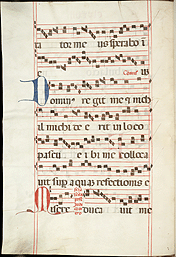 ta tor me us sperabo i
us
Domin regit me z nich
il michi de e rit in loco
pascu e i bi me colloca
uit sup aquas refectionis e
duca uit me